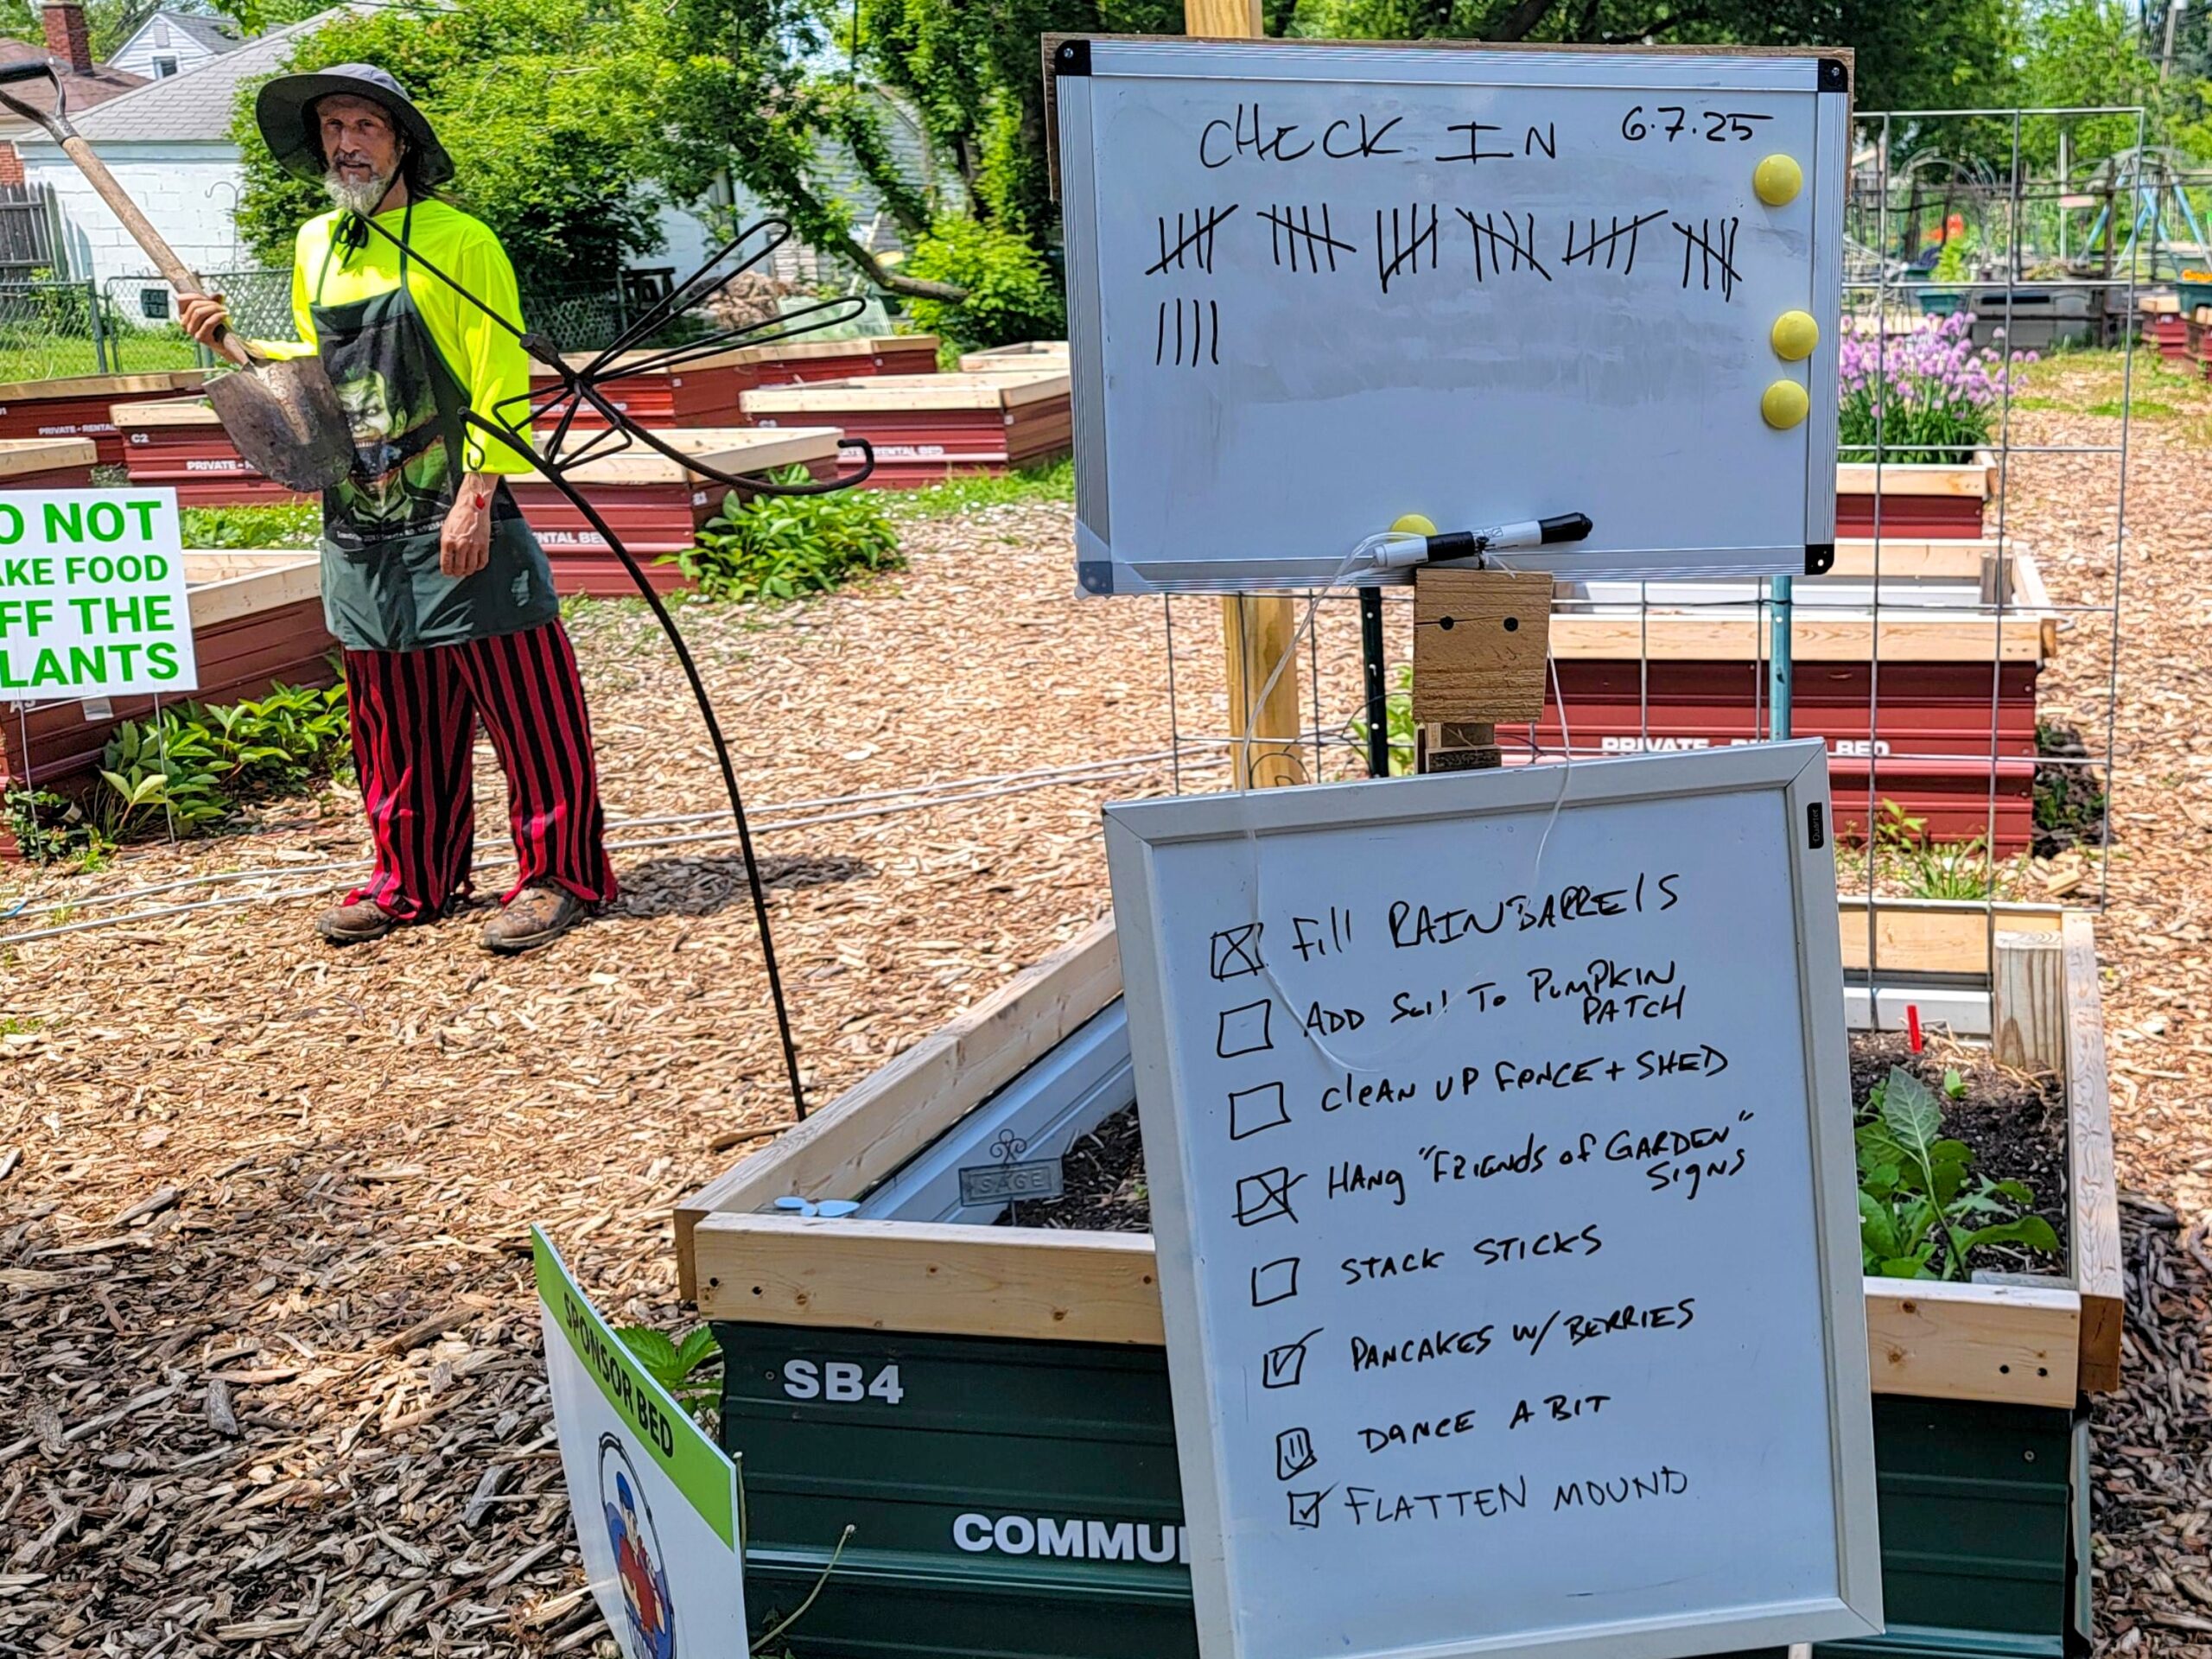 CHECK IN 6.7.25
O NOT
AKE FOOD
FF THE
LANTS
C2
PRIVATE - RENTAL
PRIVATE - R
RENTAL BED
NTAL BE
PRIVATE - BED
Quartet
Fill RAIN BARRELS
ADD Soil To PUMPKIN
PATCH
CLEAN UP FENCE + SHED
HANG "FRIENDS of GARDEN"
SIGNS
STACK STICKS
PANCAKES W/ BERRIES
DANCE A BIT
FLATTEN MOUND
SAGE
SPONSOR BED
SB4
COMMU